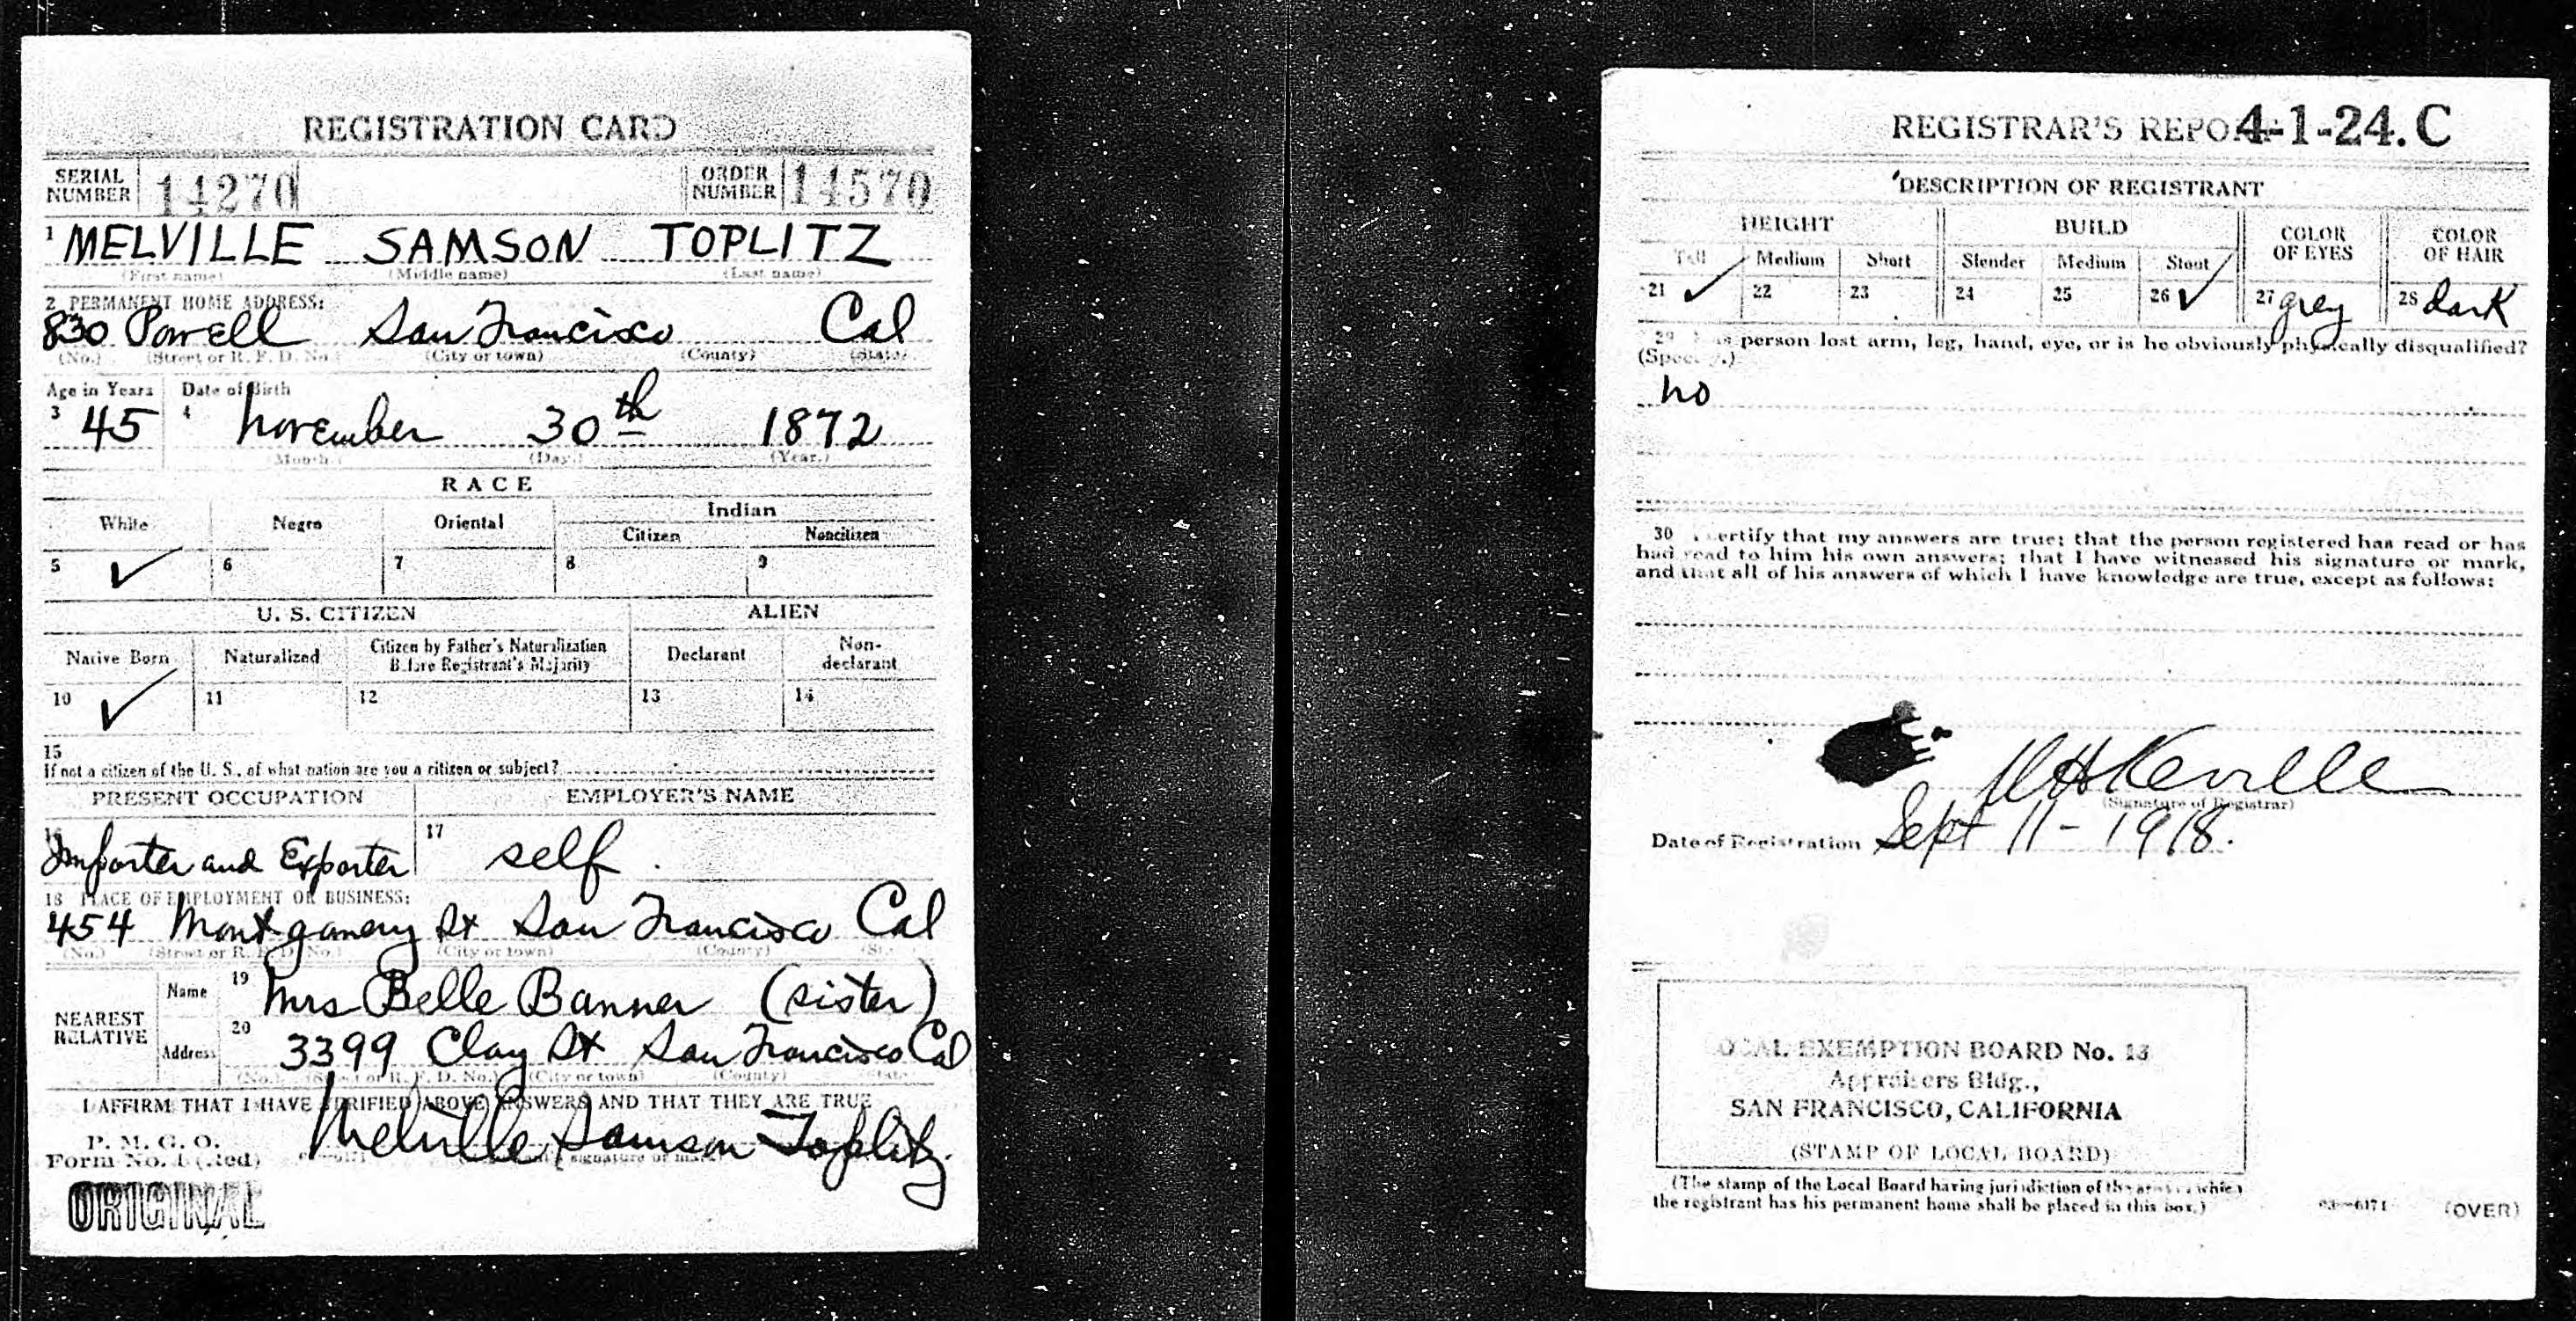 REGISTRATION CARD
SERIAL NUMBER 14270 ORDER NUMBER 14570
1 MELVILLE SAMSON TOPLITZ
(First name) (Middle name) (Last name)
2 PERMANENT HOME ADDRESS:
830 Powell San Francisco Cal
(No.) (Street or R. F. D. No.) (City or town) (County) (State)
Age in Years Date of Birth
3 45 4 November 30th 1872
(Month.) (Day.) (Year.)
RACE
White Negro Oriental Indian
Citizen Noncitizen
5 ✓ 6 7 8 9
U. S. CITIZEN ALIEN
Native Born Naturalized Citizen by Father's Naturalization Before Registrant's Majority Declarant Non-declarant
10 ✓ 11 12 13 14
15
If not a citizen of the U. S., of what nation are you a citizen or subject?
PRESENT OCCUPATION EMPLOYER'S NAME
16 Importer and Exporter 17 self
18 PLACE OF EMPLOYMENT OR BUSINESS:
454 Montgomery St San Francisco Cal
(No.) (Street or R. F. D. No.) (City or town) (County)
NEAREST RELATIVE
Name 19 Mrs Belle Banner (sister)
Address 20 3399 Clay St San Francisco Cal
(No.) (Street or R. F. D. No.) (City or town) (County) (State)
I AFFIRM THAT I HAVE VERIFIED ABOVE ANSWERS AND THAT THEY ARE TRUE
P. M. G. O.
Form No. 1 (Red) Melville Samson Toplitz
signature or mark
ORIGINAL
REGISTRAR'S REPO 4-1-24. C
DESCRIPTION OF REGISTRANT
HEIGHT BUILD COLOR OF EYES COLOR OF HAIR
Tall Medium Short Slender Medium Stout
21 ✓ 22 23 24 25 26 ✓ 27 grey 28 dark
29 person lost arm, leg, hand, eye, or is he obviously physically disqualified?
(Specify.)
no
30 I certify that my answers are true; that the person registered has read or has
had read to him his own answers; that I have witnessed his signature or mark,
and that all of his answers of which I have knowledge are true, except as follows:
Keville
(Signature of Registrar)
Date of Registration Sept 11 - 1918.
LOCAL EXEMPTION BOARD No. 13
Appraisers Bldg.,
SAN FRANCISCO, CALIFORNIA
(STAMP OF LOCAL BOARD)
(The stamp of the Local Board having jurisdiction of the area in which
the registrant has his permanent home shall be placed in this box.)
03-6171 (OVER)